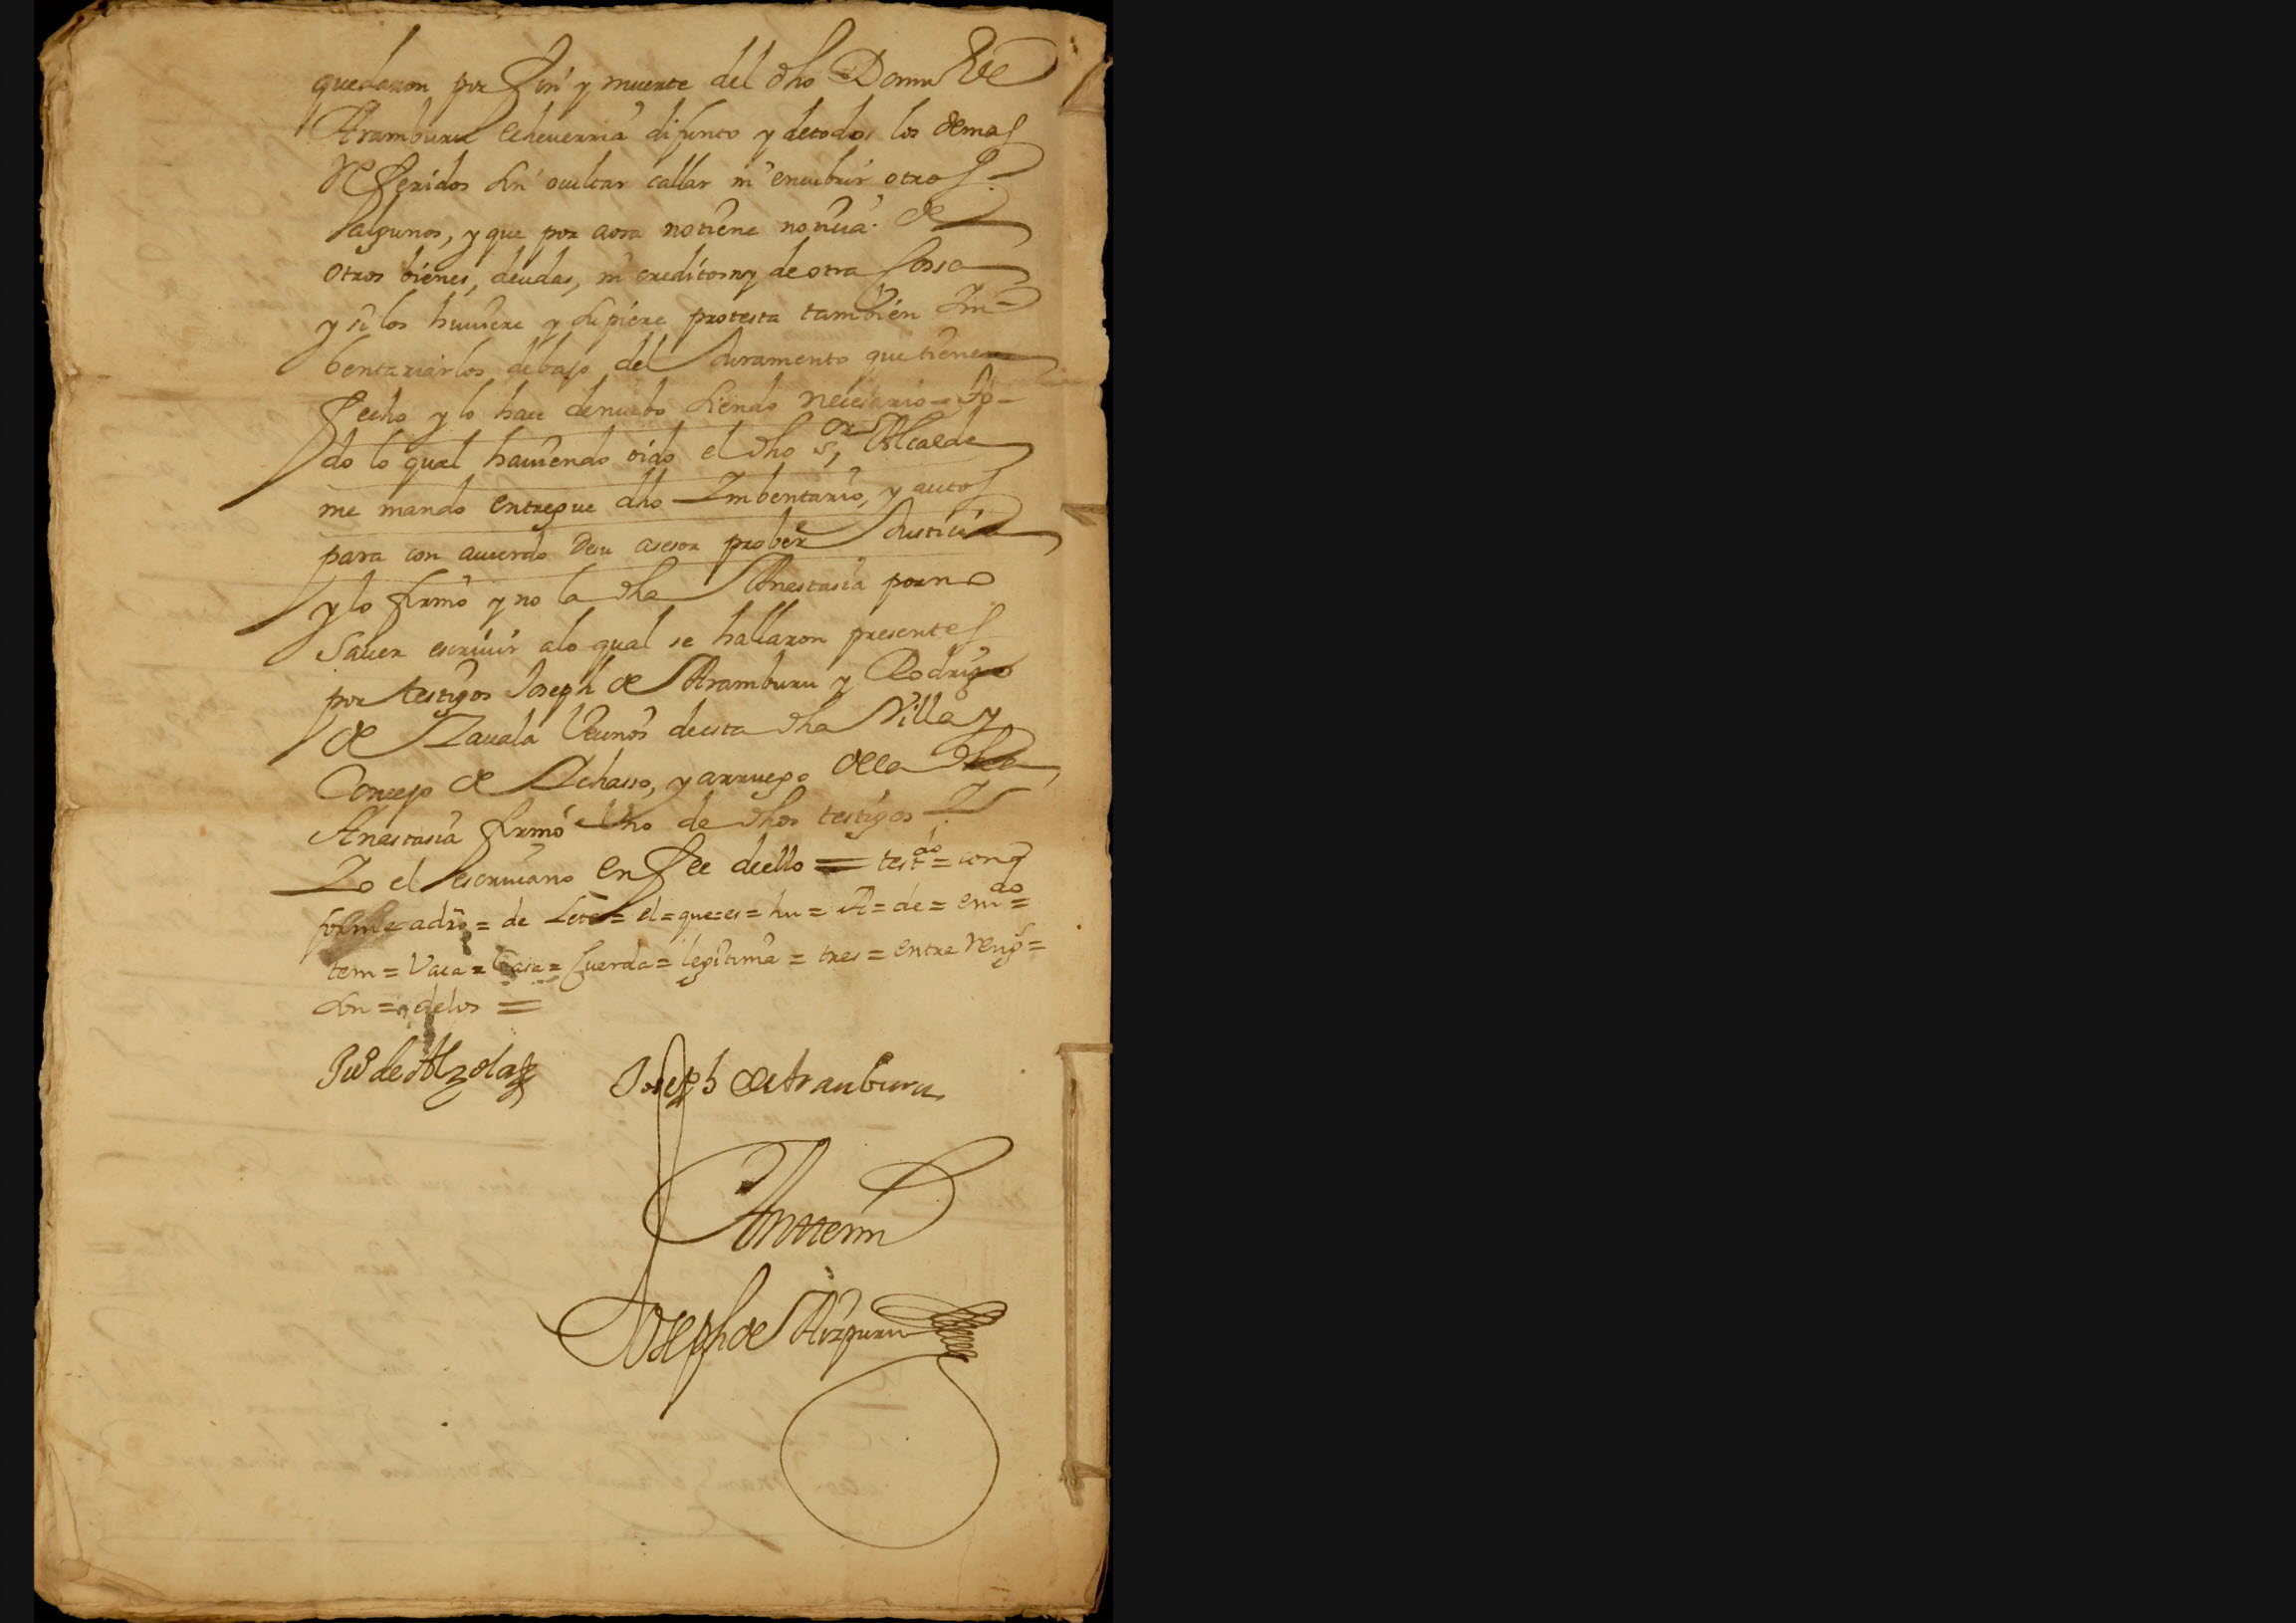 quedaron por fin y muerte del dho Domin de
Aramburu echeuerria difunto y detodos los demas
Referidos sin ocultar callar ni encubrir otros
algunos, y que por aora notiene noticia de
otros bienes, deudas, ni creditos ny de otra cossa
y si los huuiere y supiere protesta tambien Im
bentariarlos debajo del Juramento que tiene
fecho y lo hace denuebo siendo necesario = To
do lo qual hauiendo oido el dho s.or Alcalde
me mando entregue dho Imbentario, y autos
para con acuerdo desu asesor prober Justicia
y lo firmo y no la dha Anastasia porno
sauer escriuir alo qual se hallaron presentes
por testigos Joseph de Aramburu y Rodrigo
de Zauala Vecinos desta dha Villa y
Concejo de Lchasso, y arruego de la dha
Anastasia firmó Vno de dhos testigos
Yo el escriuano en fee dello = testdo = con
forme = de = el = que = es = hu = A = de = emdo =
tem = Vaca = Casa = Cuerda = legitima = tres = entre Rengs =
sin = delos =
Juo de Alzola
Joseph de Aranburu
Ante mi
Joseph de Aizpuru